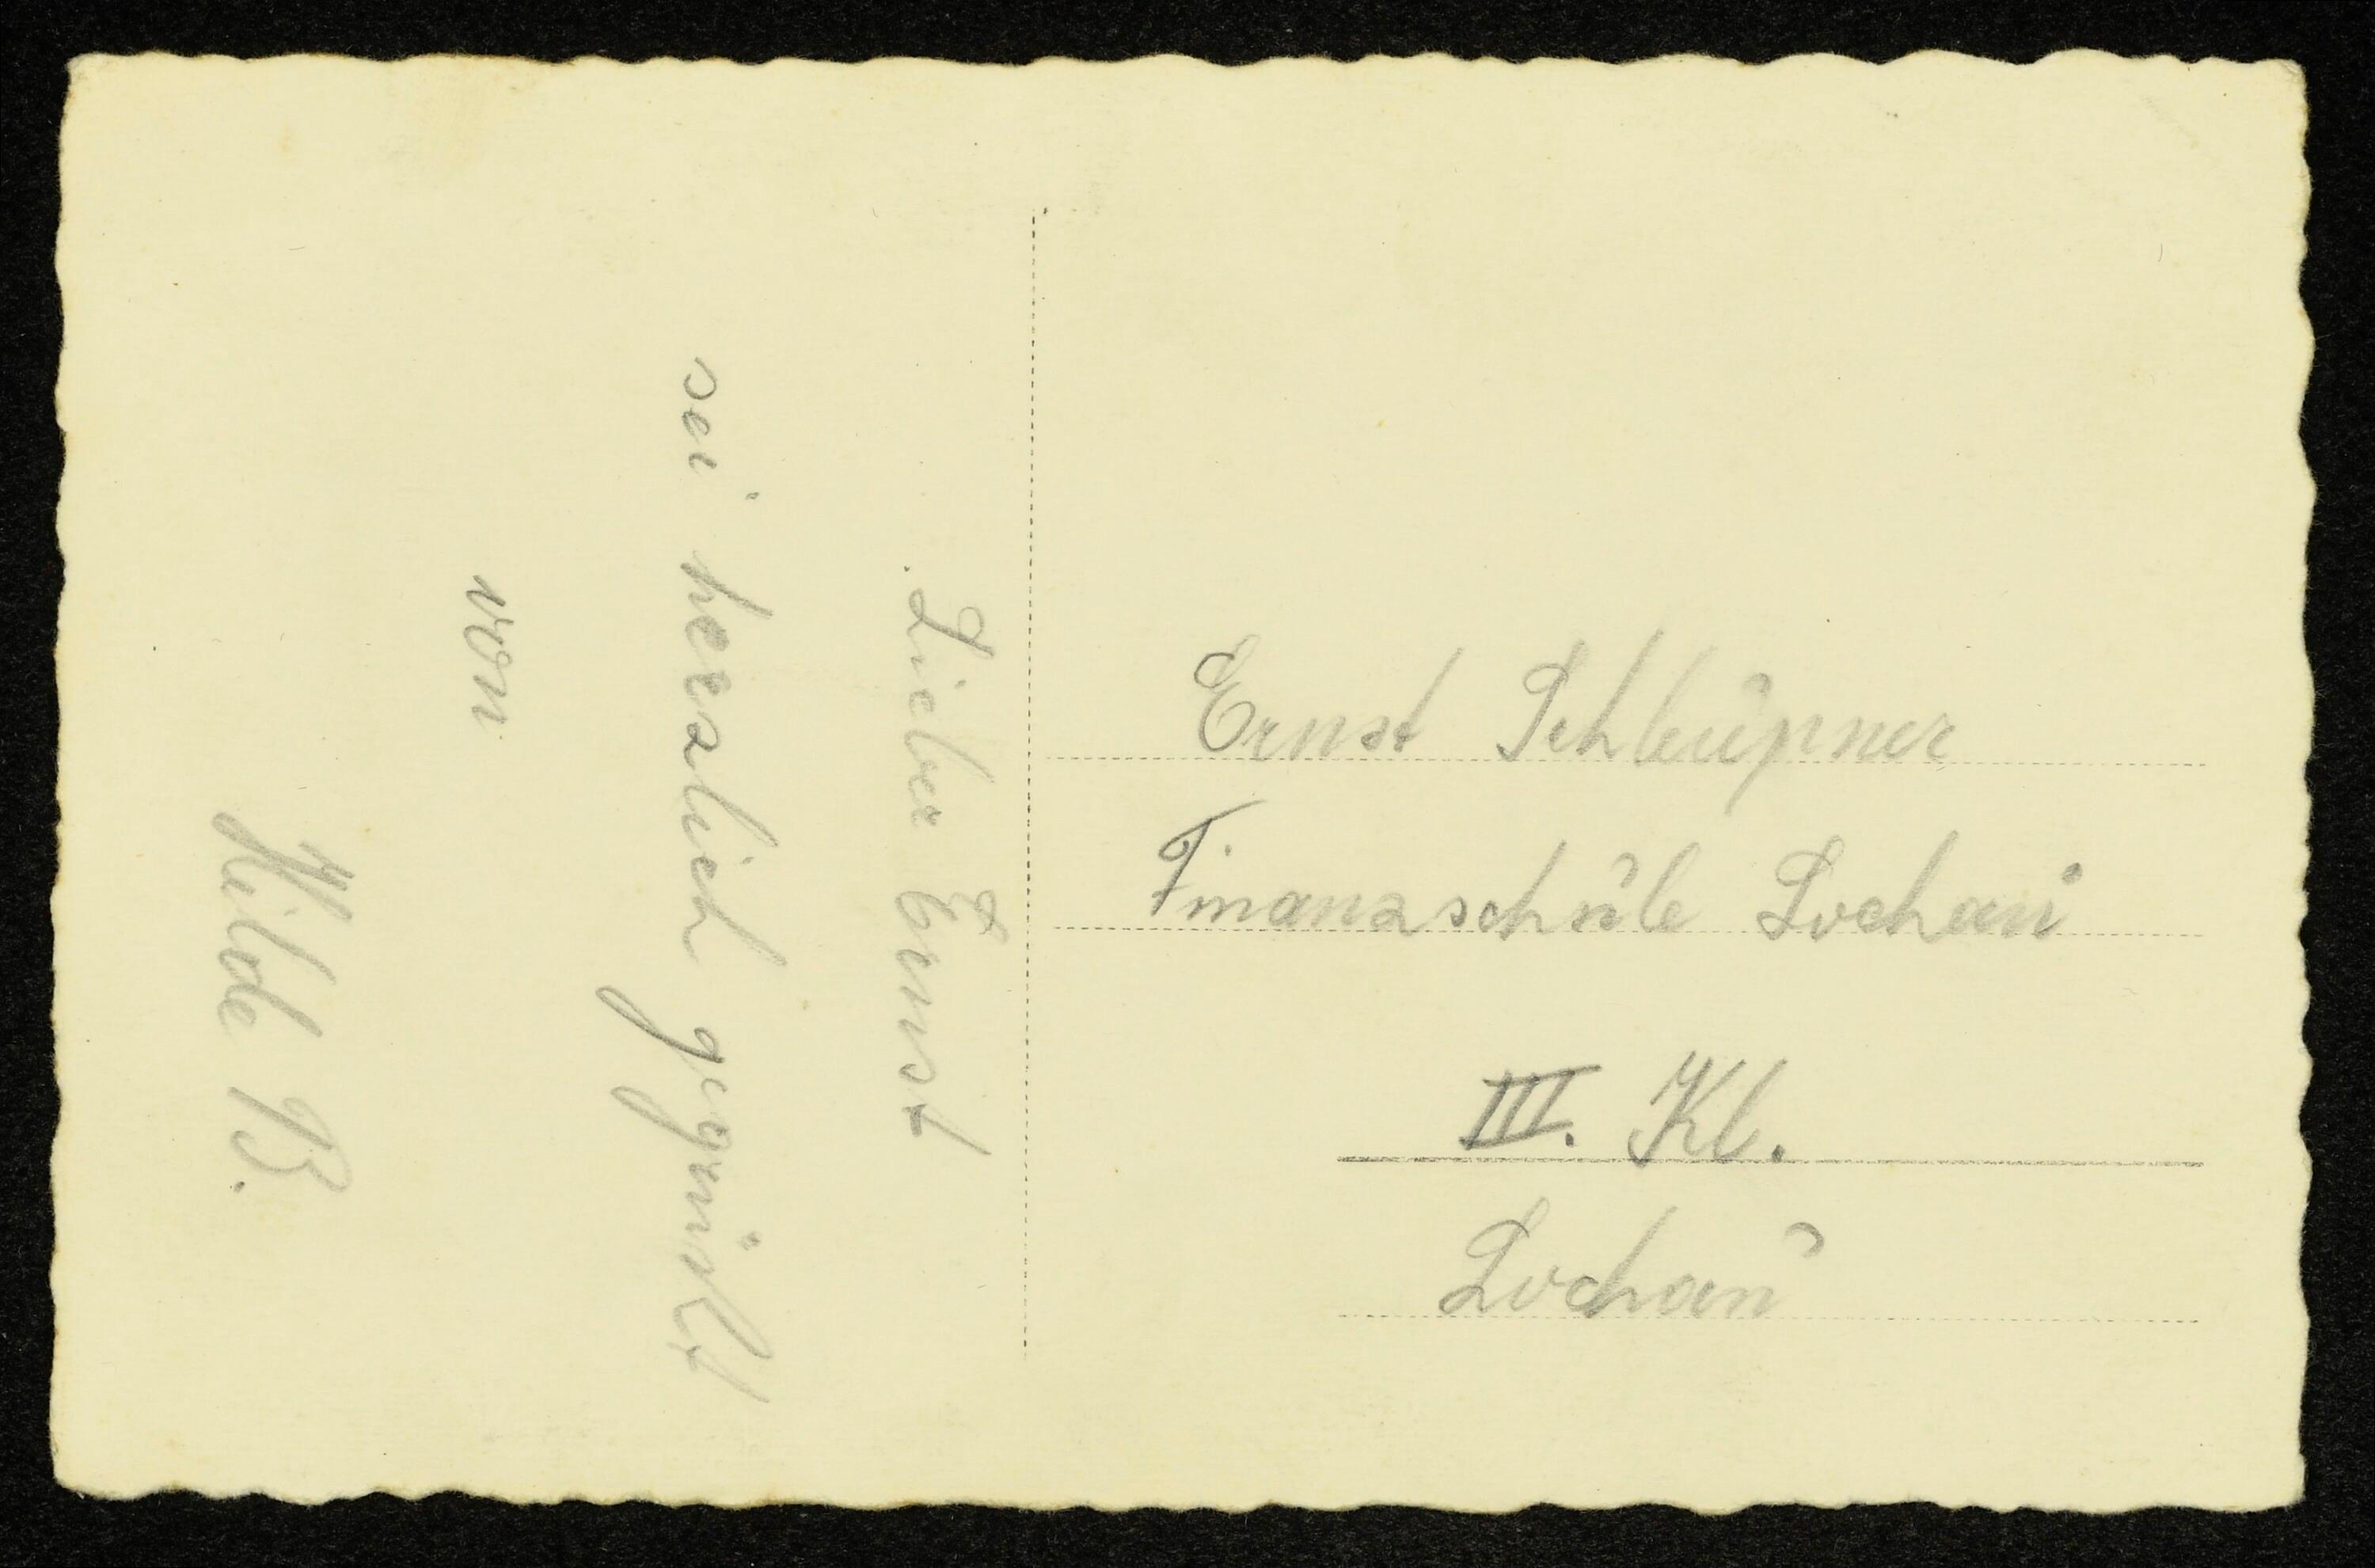 Lieber Ernst
sei herzlich gegrüßt
von
Hilde B.
Ernst Schleupner
Finanzschule Lochau
III. Kl.
Lochau